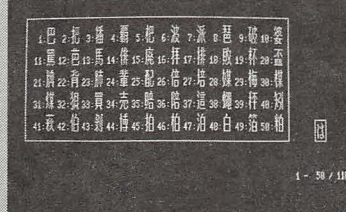 1:巴 2:把 3:播 4:覇 5:杷 6:波 7:派 8:琶 9:破 10:婆
11:罵 12:芭 13:馬 14:俳 15:廃 16:拝 17:排 18:敗 19:杯 20:盃
21:牌 22:背 23:肺 24:輩 25:配 26:倍 27:培 28:媒 29:梅 30:楳
31:煤 32:狽 33:買 34:売 35:賠 36:陪 37:這 38:蝿 39:秤 40:矧
41:萩 42:伯 43:剥 44:博 45:拍 46:柏 47:泊 48:白 49:箔 50:粕
1 - 50 /